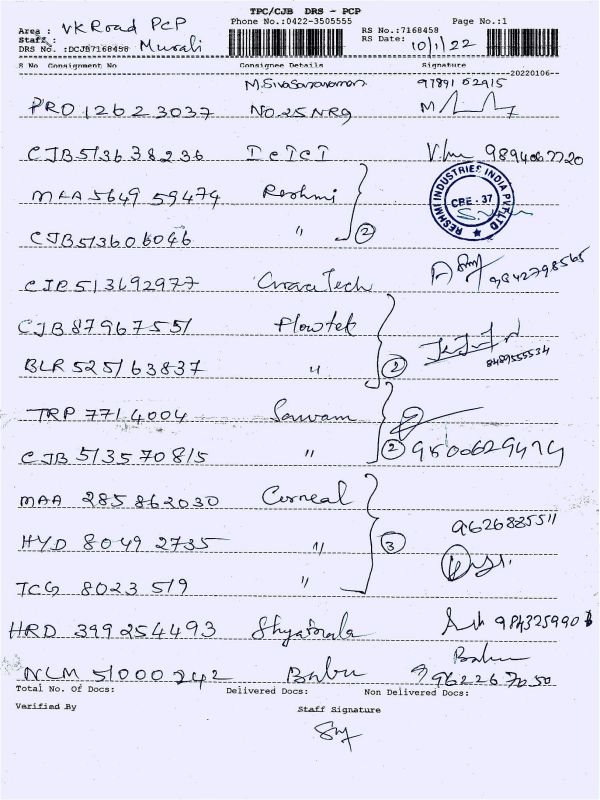 TPC/CJB DRS - PCP
Area : VK Road PCP Phone No.:0422-3505555 Page No.:1
Staff : Murali RS No.:7168458
DRS No. :DCJB7168458 RS Date: 10/1/22
S No Consignment No Consignee Details Signature
20220106
97891 02915
PRO 12623037 No.25 NRG
CJB 513638236 ICICI 9894067720
MAA 5649 59474 Reshmi
RESHMI INDUSTRIES INDIA PVT LTD
CBE - 37
CJB 513606046 " 2
CJB 513692977 Tech 9842798565
CJB 87967551 Flowtek
BLR 525163837 " 2 8489555534
TRP 7714004 Sarvam
CJB 513570815 " 2 9500629474
MAA 285862030 Corneal 9626885511
HYD 80492735 " 3
TCG 8023519 "
HRD 399254493 Shyamala
NLM 51000242 Babu Babu
9962267050
Total No. Of Docs: Delivered Docs: Non Delivered Docs:
Verified By Staff Signature